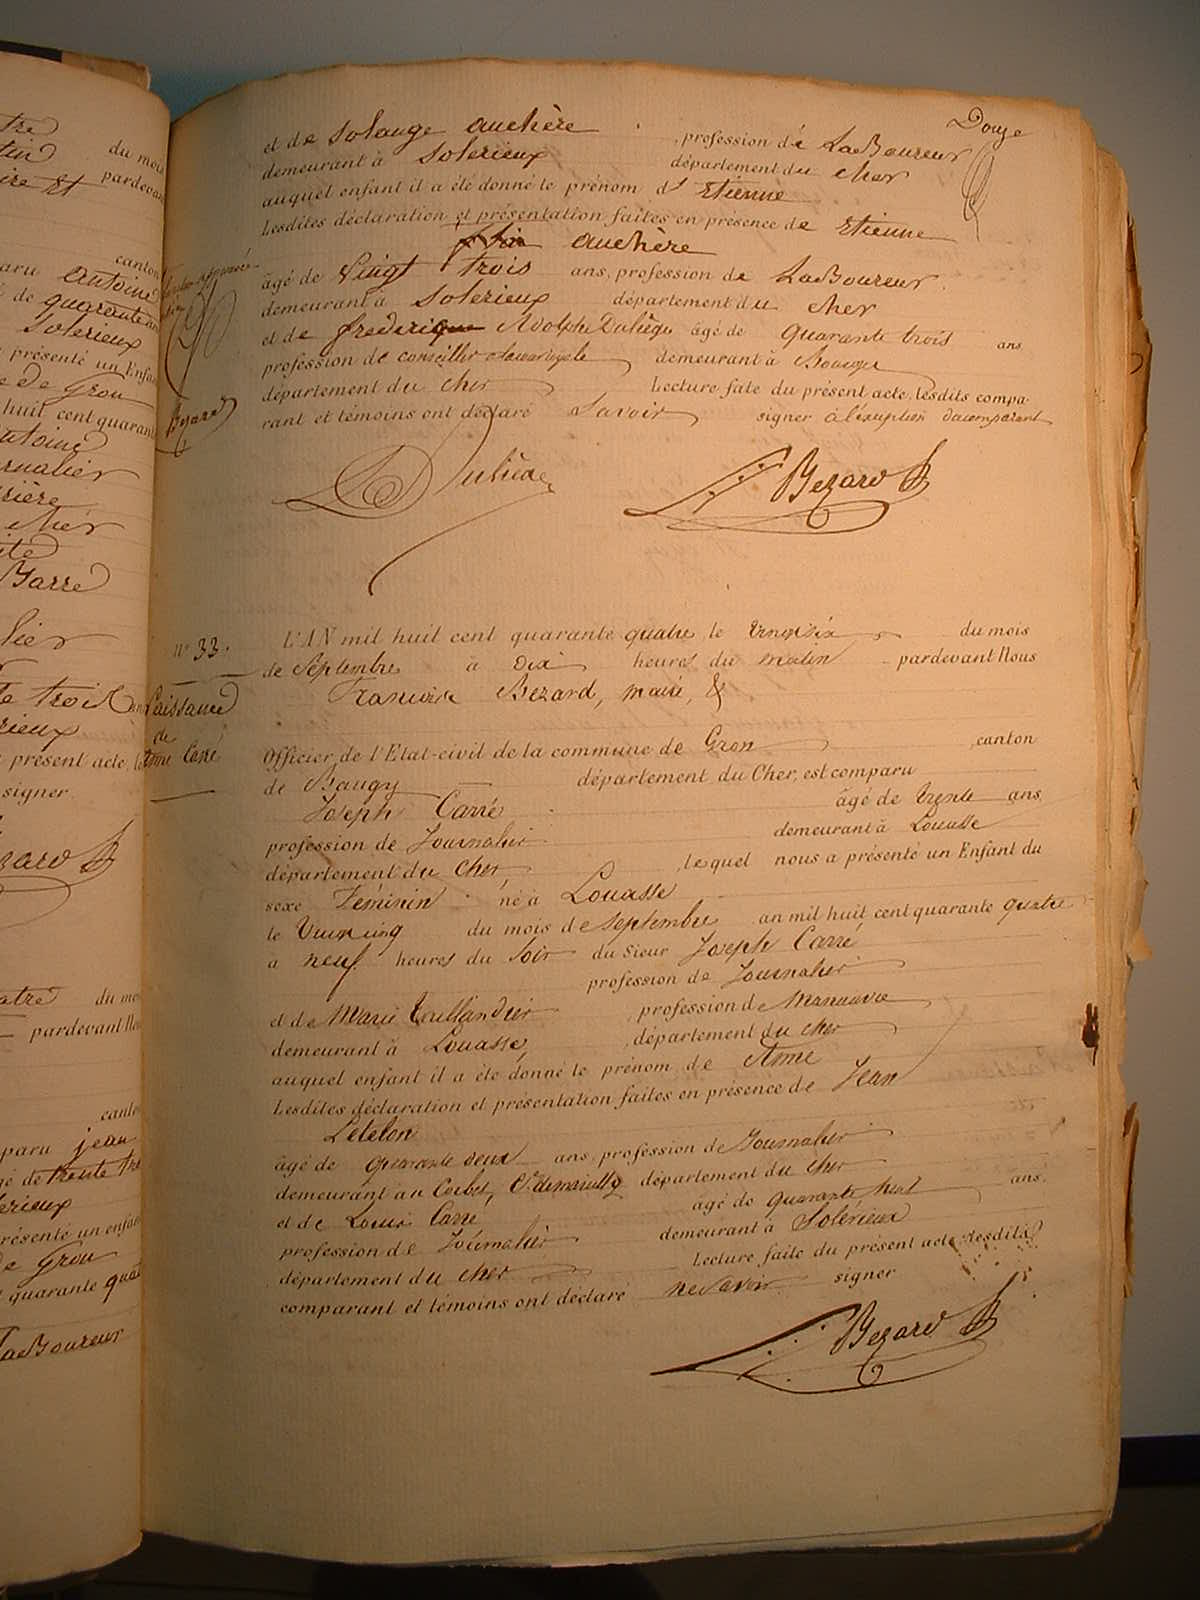 Douze
et de Solange auchère , profession de LaBoureur
demeurant à Solerieux département du cher
auquel enfant il a été donné le prénom d' Etienne
Lesdites déclaration et présentation faites en présence de Etienne
auchère
âgé de Vingt trois ans, profession de LaBoureur
demeurant à Solerieux département du cher
et de frederique Adolphe Duliège âgé de Quarante trois ans
profession de conseiller demeurant à Bourges
département du cher Lecture faite du présent acte, lesdits compa-
rant et témoins ont déclaré Savoir signer à l'exception du comparant
Bezard
Duliège
f. Bezard
N° 33.
Naissance
de
Anne Carré
L'AN mil huit cent quarante quatre le vingt six du mois
de Septembre à dix heures du matin pardevant Nous
François Bezard, maire, &
Officier de l'Etat-civil de la commune de Gron canton
de Baugy département du Cher, est comparu
Joseph Carré âgé de trente ans
profession de Journalier demeurant à Louasse
département du cher , lequel nous a présenté un Enfant du
sexe Féminin né à Louasse
le Vingt cinq du mois de Septembre an mil huit cent quarante quatre
à neuf heures du Soir du Sieur Joseph Carré
profession de Journalier
et de Marie Taillandier , profession de Manœuvre
demeurant à Louasse , département du cher
auquel enfant il a été donné le prénom de Anne
Lesdites déclaration et présentation faites en présence de Jean
Letelon
âgé de quarante deux ans, profession de Journalier
demeurant au Corbet, département du cher
et de Louis Carré âgé de quarante huit ans,
profession de Journalier demeurant à Solérieux
département du cher Lecture faite du présent acte lesdits
comparant et témoins ont déclaré ne savoir signer
f. Bezard
tre
tin du mois
ire Et pardevant
canton
paru antoine
é de quarante
Solerieux
présenté un Enfant
e de Gron
huit cent quarante
antoine
rnalier
rière
cher
ité
Barre
lier
te trois ans
rieux
présent acte, les
signer
Bezard
atre du mois
pardevant Nous
canton
paru jean
gé de trente tr
lerieux
présenté un enfant
de Gron
quarante quat
LaBoureur